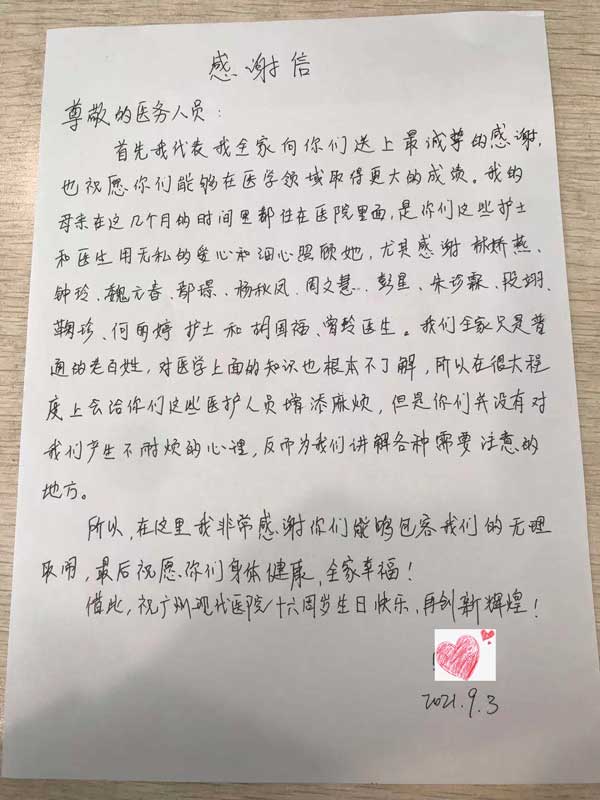 感谢信
尊敬的医务人员：
首先我代表我全家向你们送上最诚尊的感谢，
也祝愿你们能够在医学领域取得更大的成绩。我的
母亲在这几个月的时间里都住在医院里面，是你们这些护士
和医生用无私的爱心和细心照顾她，尤其感谢林娇燕、
钟玲、魏元春、鄢璟、杨秋凤、周文慧、彭星、朱珍霖、段翊、
鞠珍、何雨婷护士和胡国福、曾玲医生。我们全家只是普
通的老百姓，对医学上面的知识也根本不了解，所以在很大程
度上会给你们这些医护人员增添麻烦，但是你们并没有对
我们产生不耐烦的心理，反而为我们讲解各种需要注意的
地方。
所以，在这里我非常感谢你们能够包容我们的无理
取闹，最后祝愿你们身体健康，全家幸福！
借此，祝广州现代医院十六周岁生日快乐，再创新辉煌！
2021.9.3